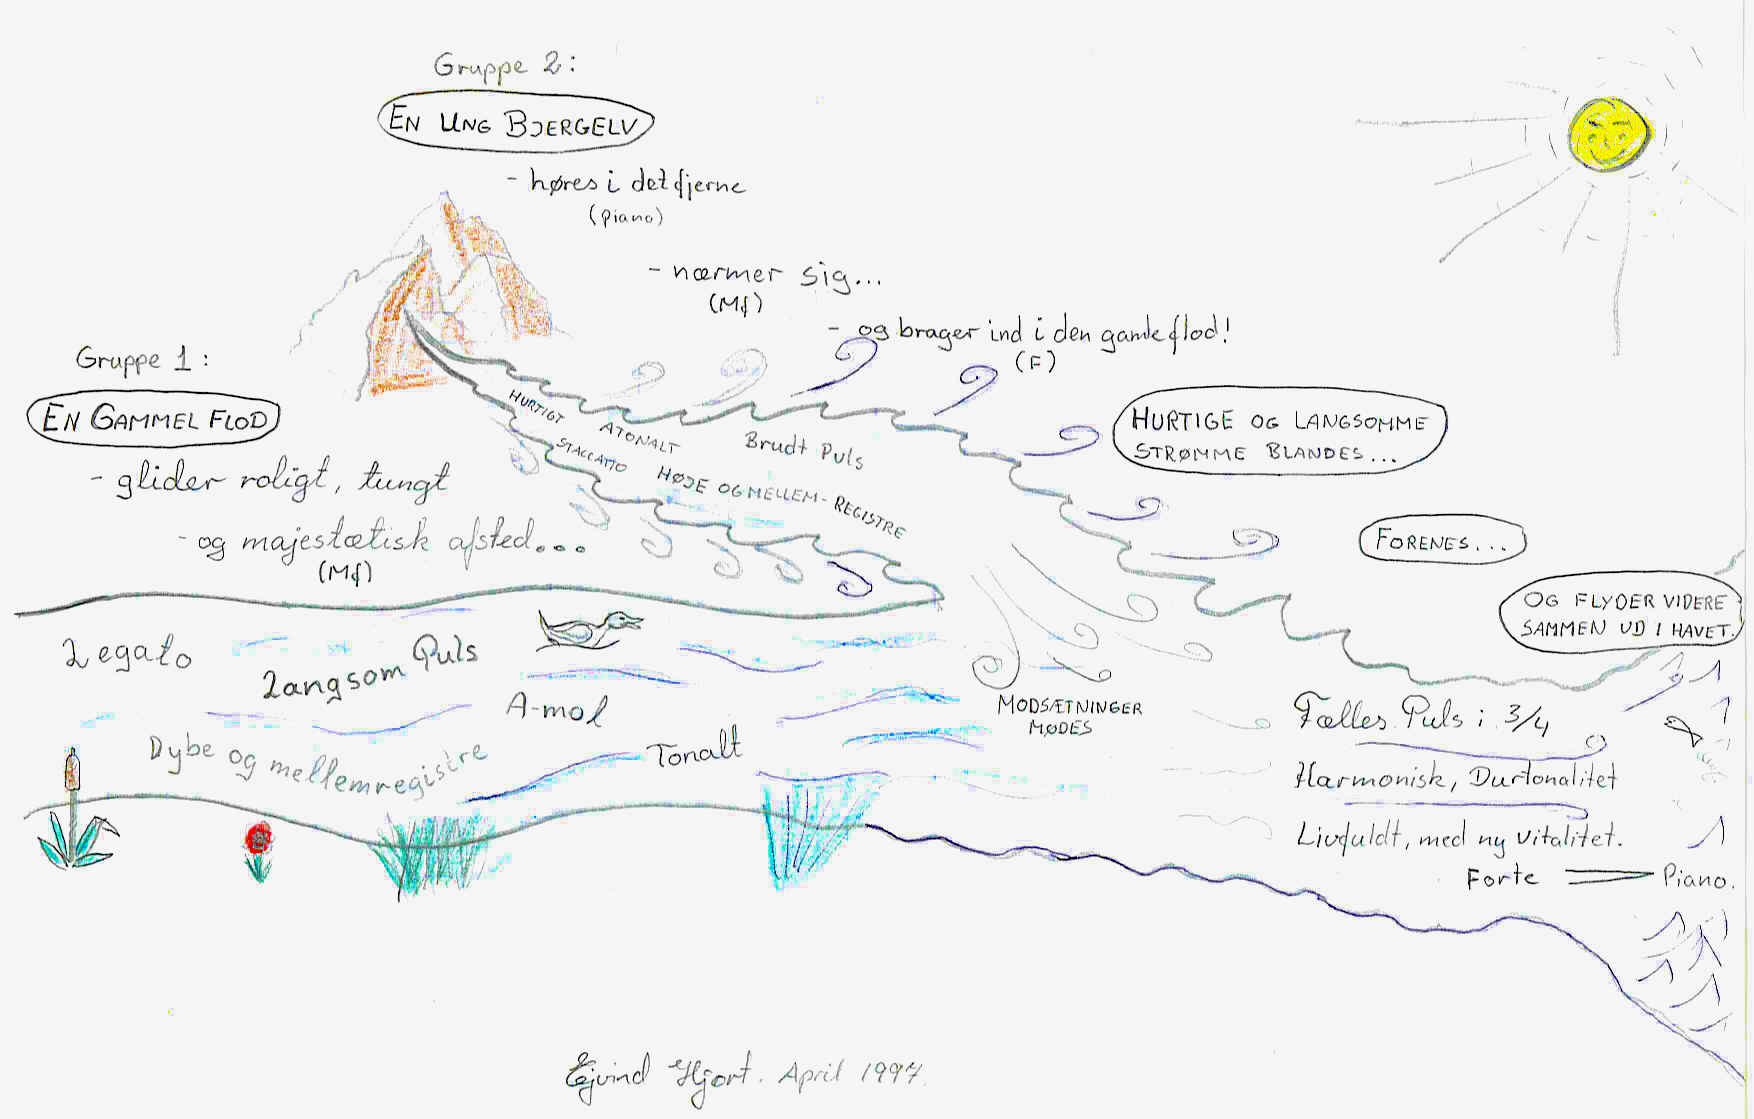 Gruppe 2:
EN UNG BJERGELV
- høres i det fjerne
(piano)
- nærmer sig...
(Mf)
- og brager ind i den gamle flod!
(F)
Gruppe 1:
EN GAMMEL FLOD
- glider roligt, tungt
- og majestætisk afsted...
(Mf)
HURTIGT
ATONALT
STACCATTO
Brudt Puls
HØJE OG MELLEM-REGISTRE
HURTIGE OG LANGSOMME
STRØMME BLANDES...
FORENES...
OG FLYDER VIDERE
SAMMEN UD I HAVET.
Legato
Langsom Puls
A-mol
Dybe og mellemregistre
Tonalt
MODSÆTNINGER
MØDES
Fælles Puls i 3/4
Harmonisk, Durtonalitet
Livfuldt, med ny vitalitet.
Forte Piano.
Ejvind Hjort. April 1997.